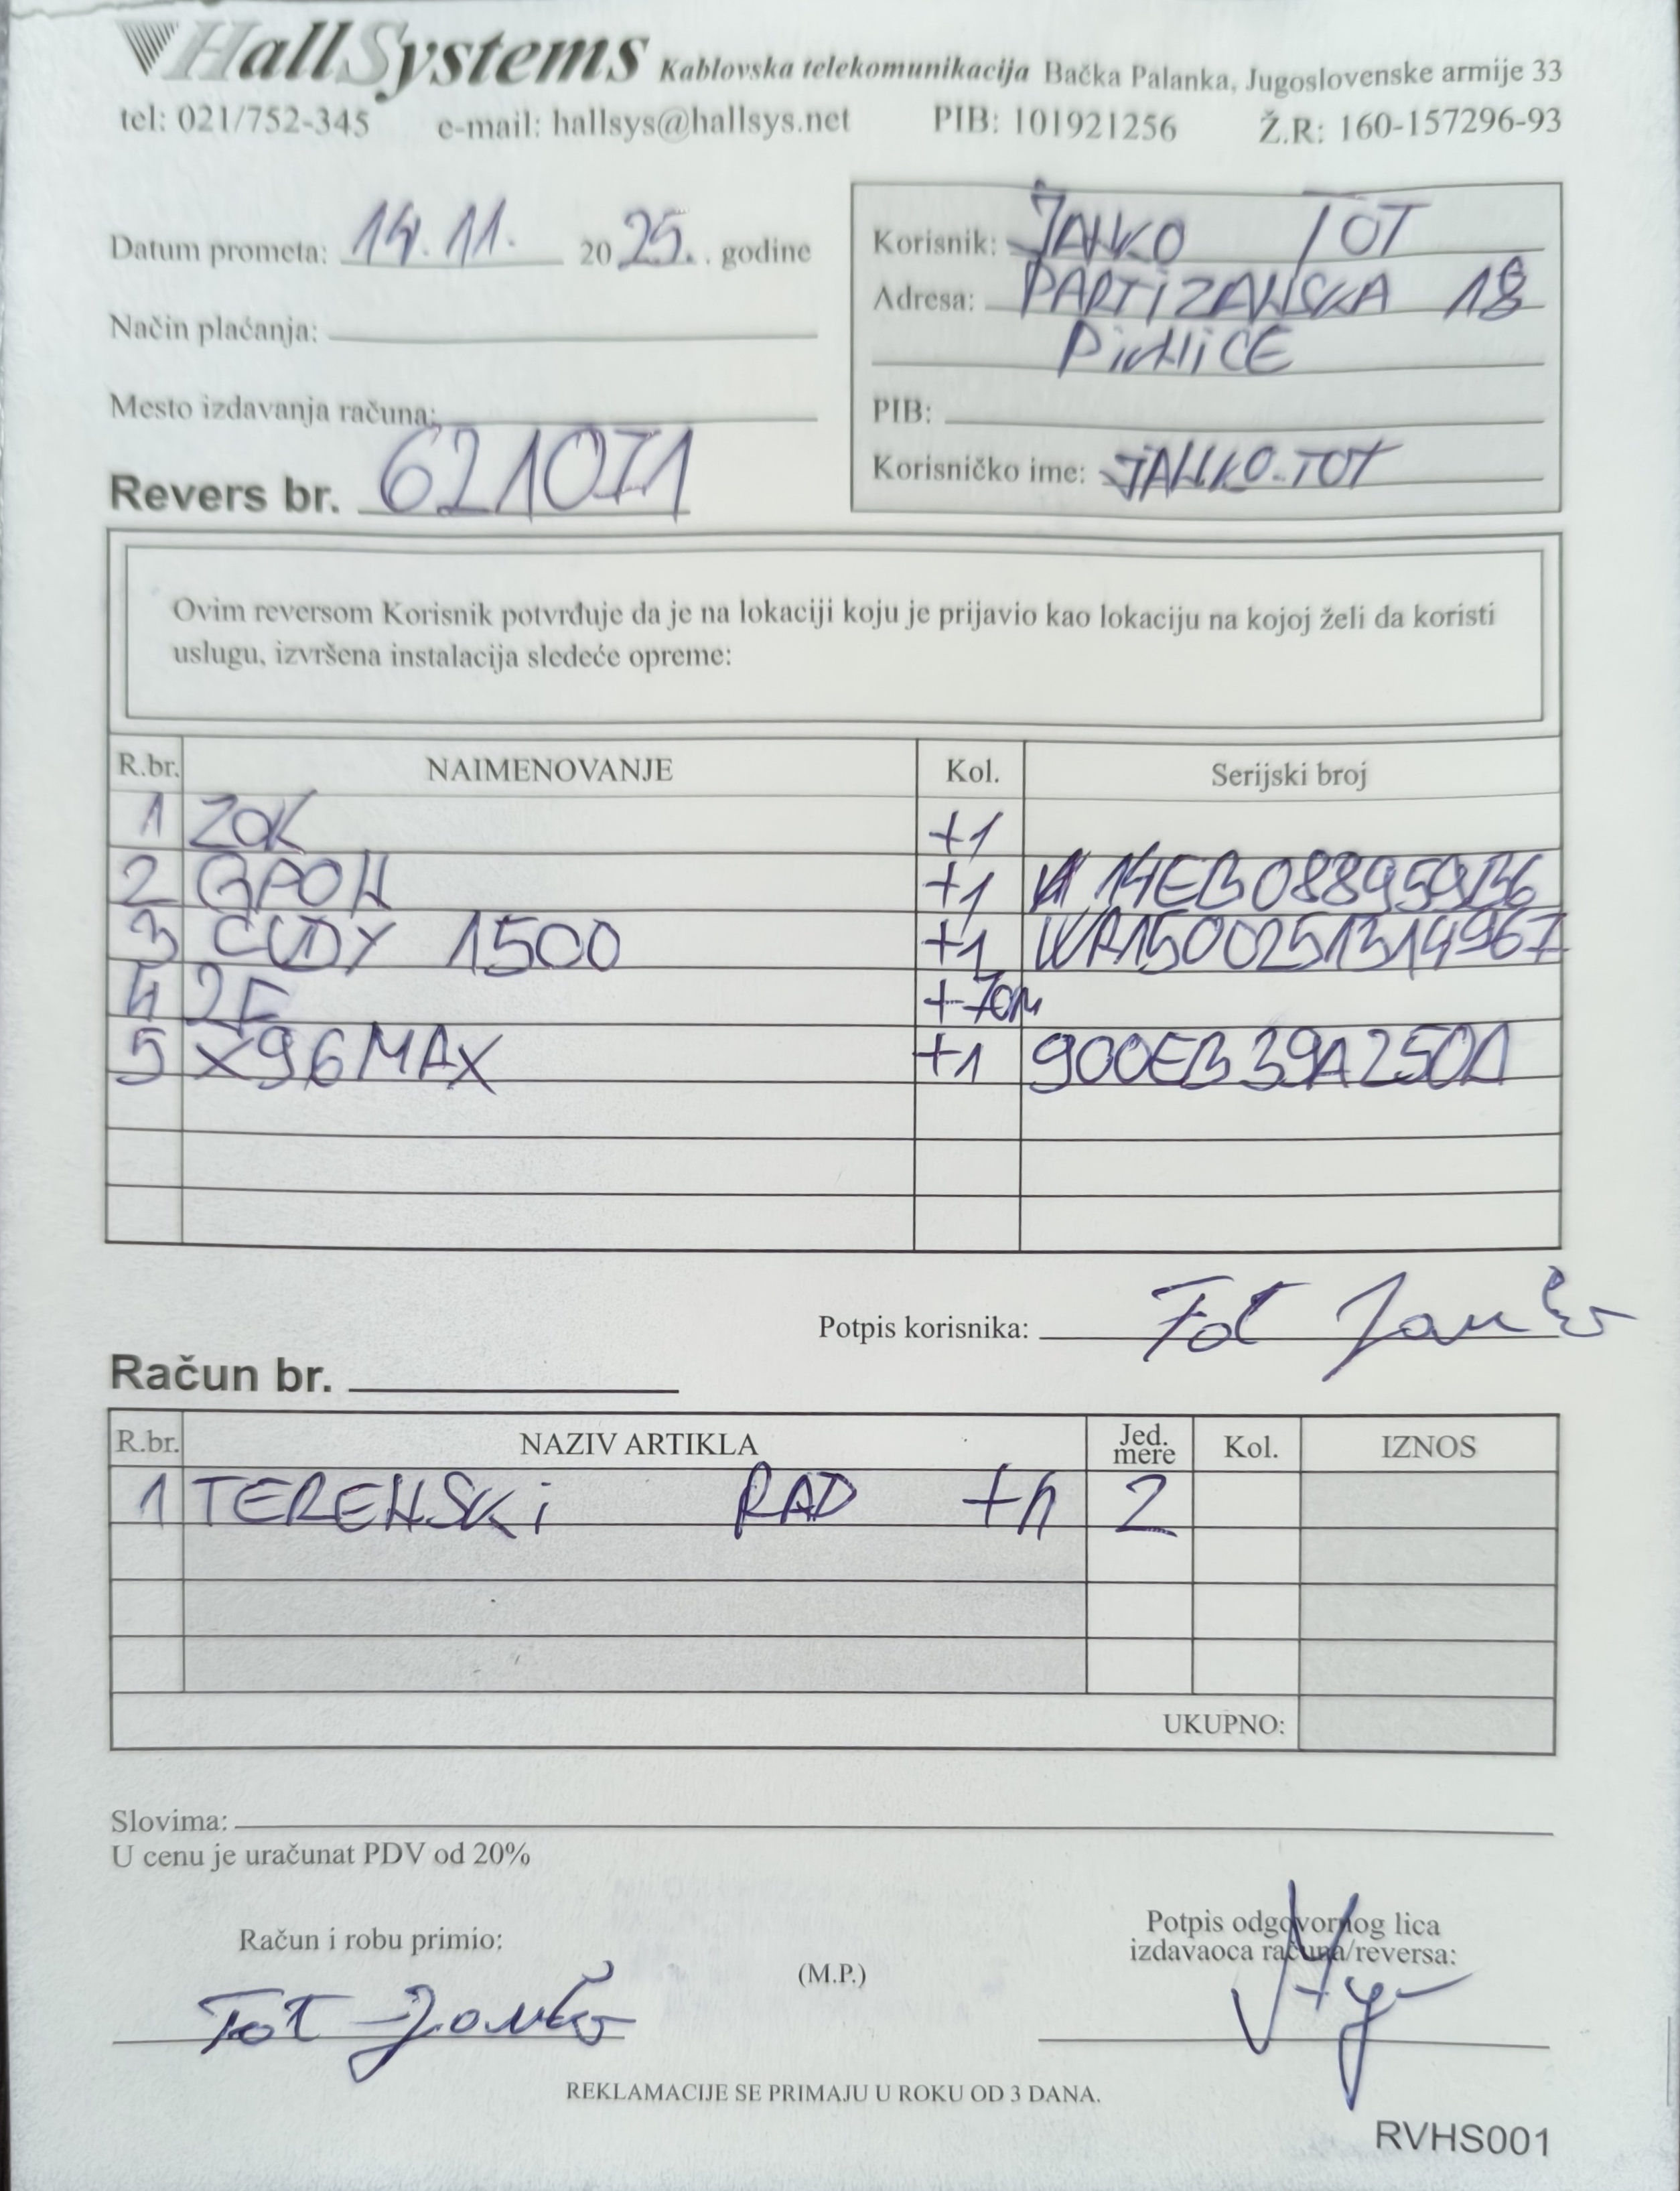 HallSystems Kablovska telekomunikacija Bačka Palanka, Jugoslovenske armije 33
tel: 021/752-345 e-mail: hallsys@hallsys.net PIB: 101921256 Ž.R: 160-157296-93
Datum prometa: 14.11. 2025. . godine
Način plaćanja:
Mesto izdavanja računa:
Revers br. 621071
Korisnik: JANKO TOT
Adresa: PARTIZANSKA 18
PIVNICE
PIB:
Korisničko ime: JANKO.TOT
Ovim reversom Korisnik potvrđuje da je na lokaciji koju je prijavio kao lokaciju na kojoj želi da koristi
uslugu, izvršena instalacija sledeće opreme:
R.br. NAIMENOVANJE Kol. Serijski broj
1 ZOK +1
2 GPON +1
3 CUDY 1500 +1 WR1500251314967
4 2F +70m
5 X96MAX +1 900EB39A250A
Potpis korisnika: Tot Janko
Račun br.
R.br. NAZIV ARTIKLA Jed. mere Kol. IZNOS
1 TERENSKI RAD +h 2
UKUPNO:
Slovima:
U cenu je uračunat PDV od 20%
Račun i robu primio:
Tot Janko
(M.P.)
Potpis odgovornog lica
izdavaoca računa/reversa:
REKLAMACIJE SE PRIMAJU U ROKU OD 3 DANA.
RVHS001